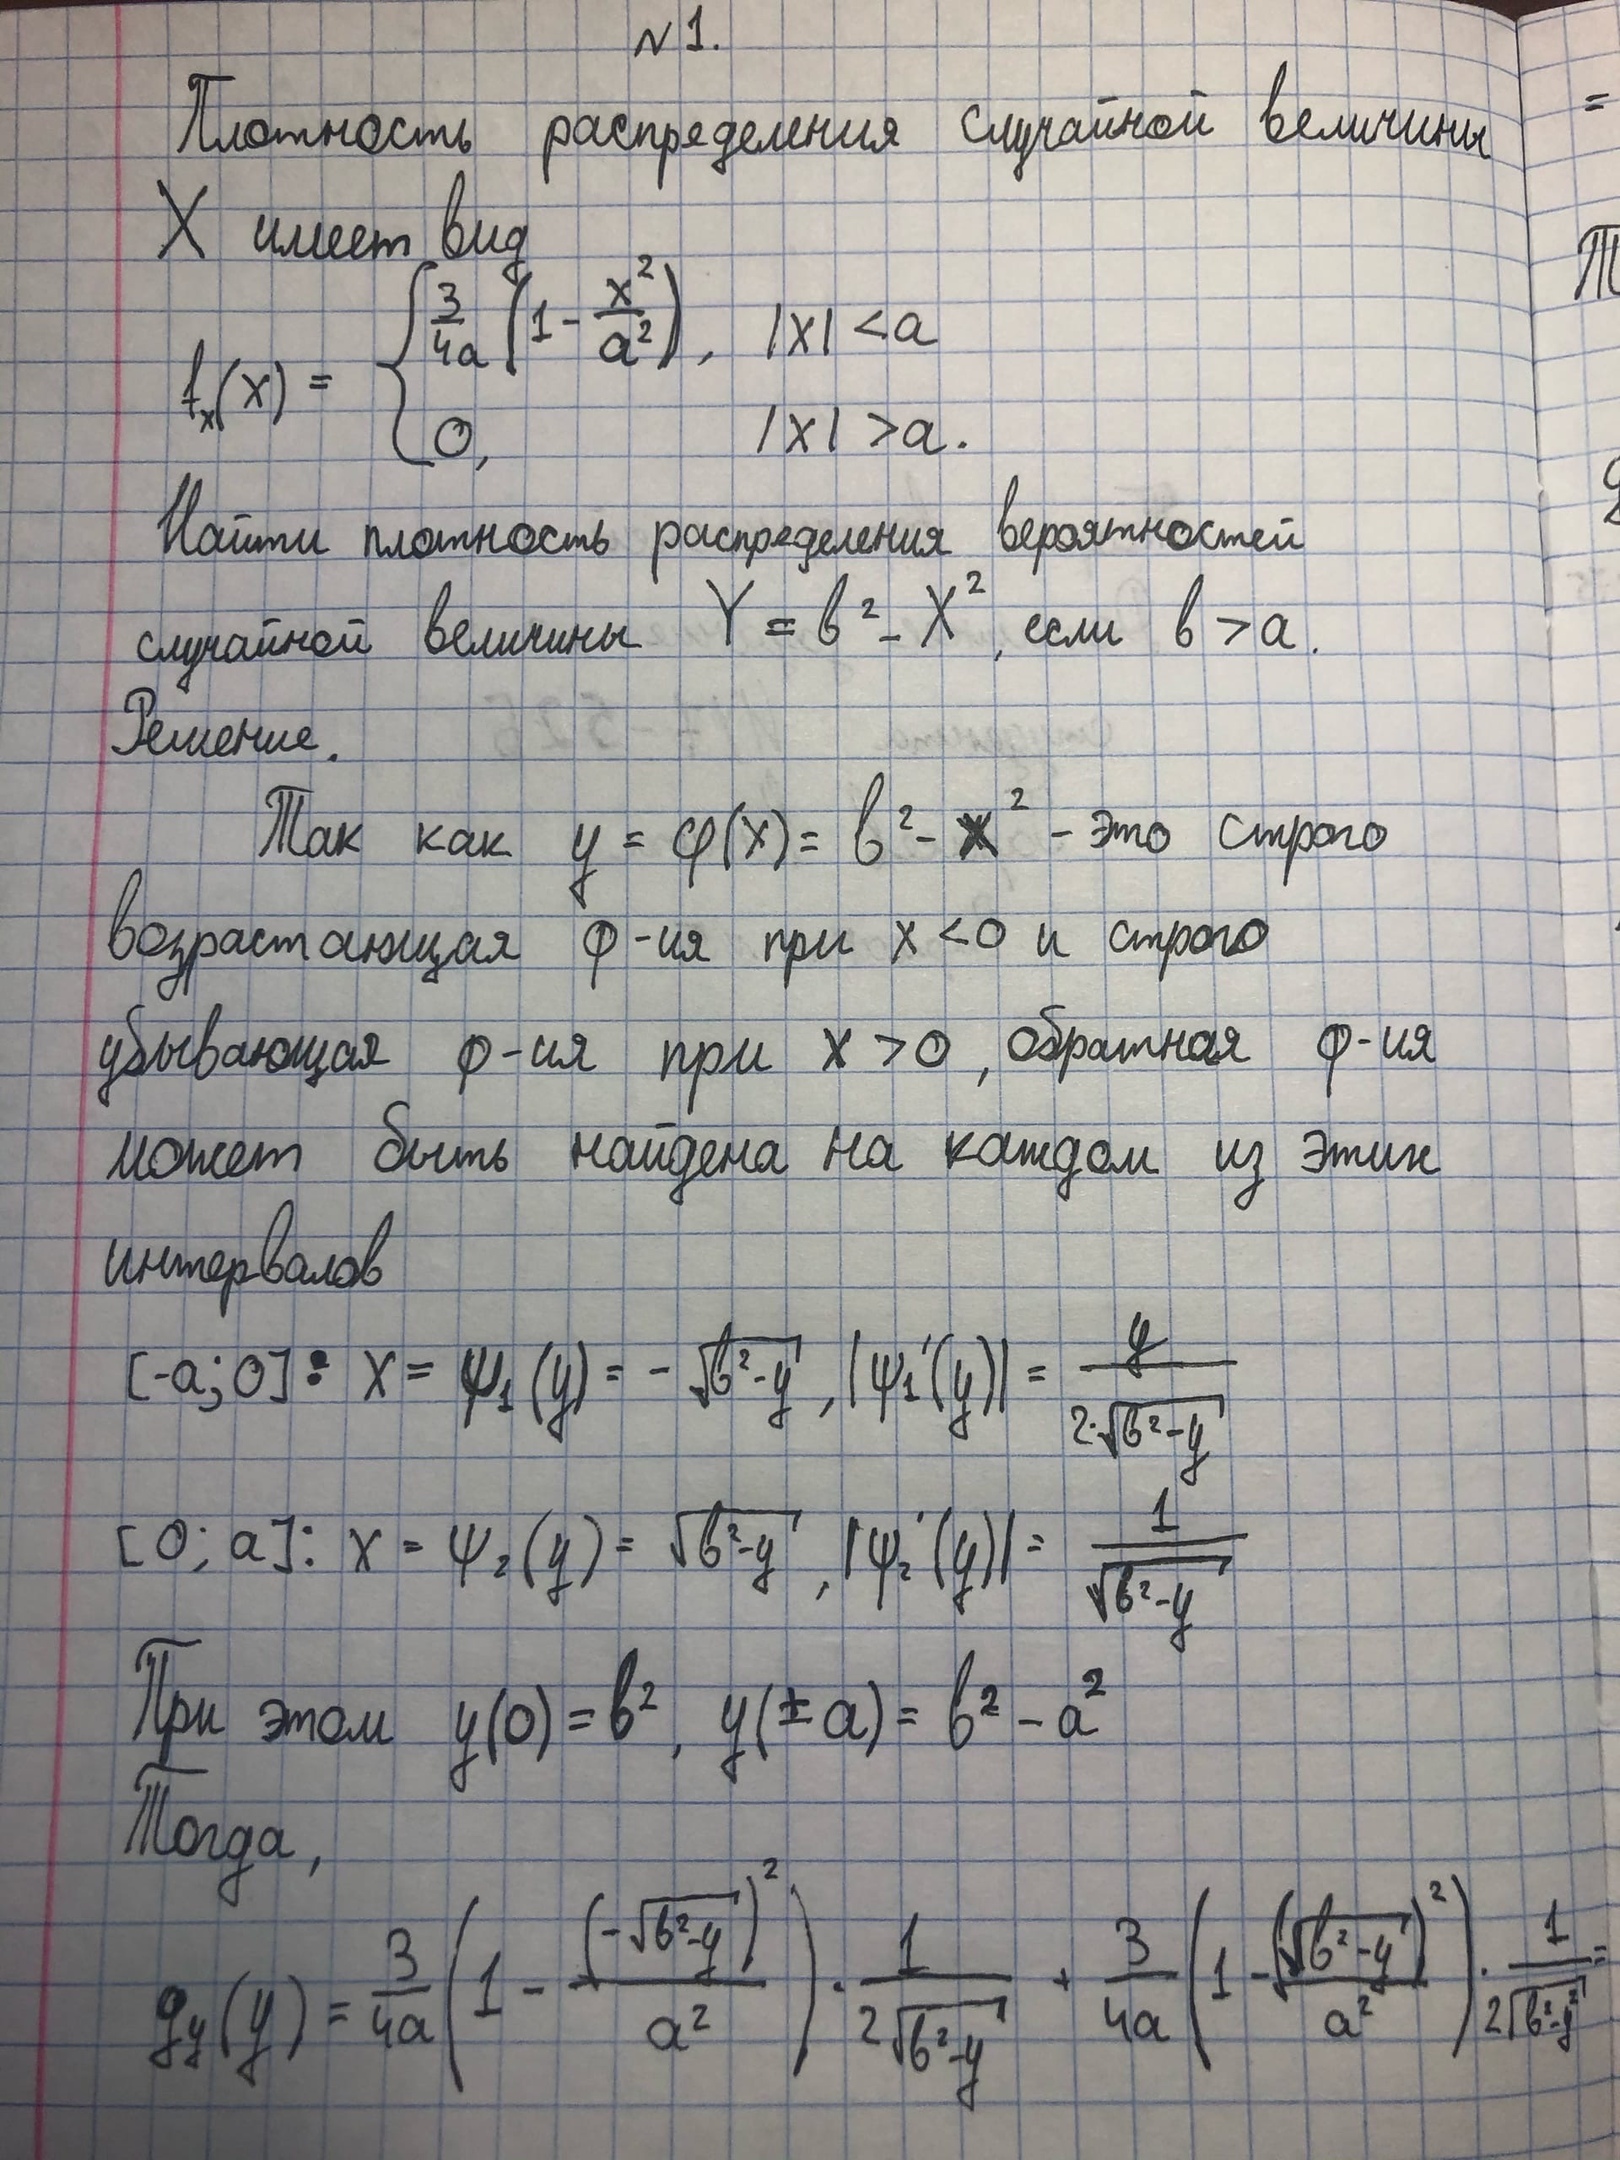 №1.
Плотность распределения случайной величины
X имеет вид
fₓ(x) = { 3/4a (1 - x²/a²), |x| < a
0, |x| > a.
Найти плотность распределения вероятностей
случайной величины Y = b² - X², если b > a.
Решение.
Так как y = φ(x) = b² - x² - это строго
возрастающая ф-ия при x < 0 и строго
убывающая ф-ия при x > 0, обратная ф-ия
может быть найдена на каждом из этих
интервалов
[-a; 0]: x = ψ₁(y) = - √(b²-y), |ψ₁'(y)| = y/(2·√(b²-y))
[0; a]: x = ψ₂(y) = √(b²-y), |ψ₂'(y)| = 1/√(b²-y)
При этом y(0) = b², y(±a) = b² - a²
Тогда,
g_y(y) = 3/4a (1 - (-√(b²-y))²/a²) · 1/(2√(b²-y)) + 3/4a (1 - (√(b²-y))²/a²) · 1/(2√(b²-y²)) =